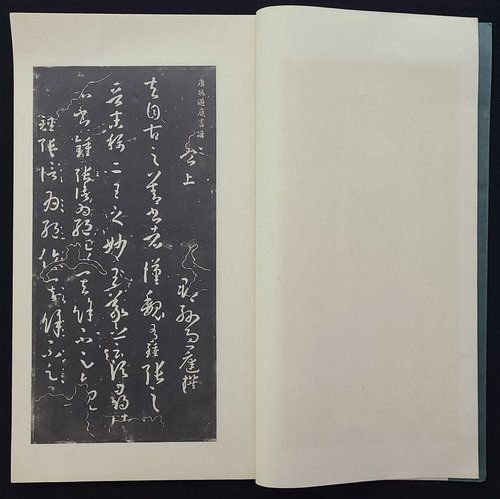 唐孫過庭書譜
卷上 吳郡孫過庭撰
夫自古之善書者漢魏有鍾張之
晉末稱二王之妙王羲之云頃尋諸
名書鍾張信為絕倫其餘不足觀
鍾張信為絕倫其餘不足